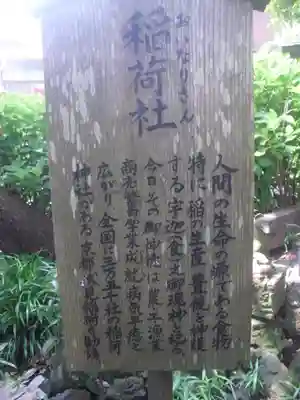 おいなりさん
稲荷社
人間の生命の源である食物
特に稲の生産、豊穣を神護
する宇迦之御魂神を祀る
今日その御神徳は農工漁業
商売繁昌学業成就病気平癒と
広がり、全国三万五千社の稲荷
神社がある 京都伏見稲荷の御